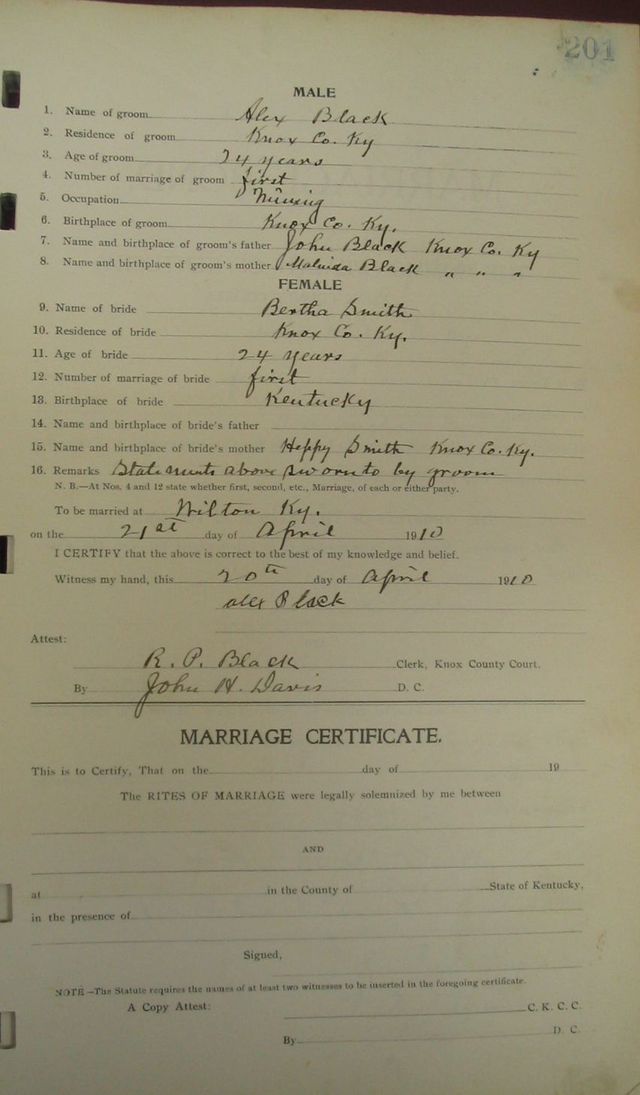 201
MALE
1. Name of groom Alex Black
2. Residence of groom Knox Co. Ky
3. Age of groom 24 years
4. Number of marriage of groom first
5. Occupation Mining
6. Birthplace of groom Knox Co. Ky.
7. Name and birthplace of groom's father John Black Knox Co. Ky
8. Name and birthplace of groom's mother Malinda Black " " "
FEMALE
9. Name of bride Bertha Smith
10. Residence of bride Knox Co. Ky.
11. Age of bride 24 years
12. Number of marriage of bride first
13. Birthplace of bride Kentucky
14. Name and birthplace of bride's father
15. Name and birthplace of bride's mother Heppy Smith Knox Co. Ky.
16. Remarks Statements above sworn to by groom
N. B.—At Nos. 4 and 12 state whether first, second, etc., Marriage, of each or either party.
To be married at Wilton Ky.
on the 21st day of April 1910
I CERTIFY that the above is correct to the best of my knowledge and belief.
Witness my hand, this 20th day of April 1910
alex Black
Attest:
R. P. Black Clerk, Knox County Court.
By John H. Davis D. C.
MARRIAGE CERTIFICATE.
This is to Certify, That on the day of 19
The RITES OF MARRIAGE were legally solemnized by me between
AND
at in the County of State of Kentucky,
in the presence of
Signed,
NOTE—The Statute requires the names of at least two witnesses to be inserted in the foregoing certificate.
A Copy Attest: C. K. C. C.
By D. C.